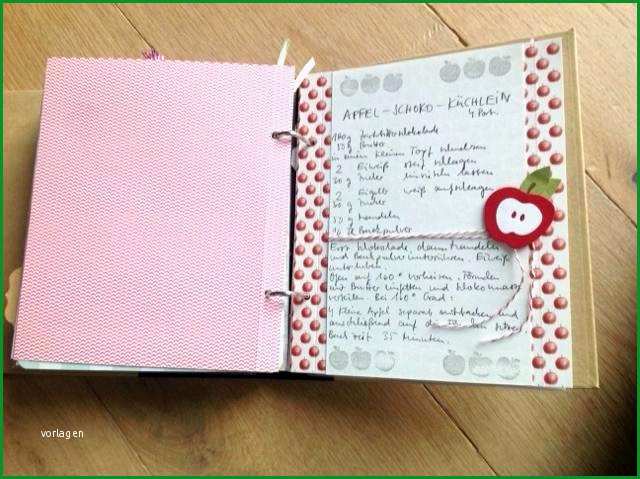 APFEL-SCHOKO-KÜCHLEIN
4 Port.
100g Zartbitterschokolade
50g Butter
in einem kleinen Topf schmelzen
2 Eiweiß steif schlagen
30g Zucker
2 Eigelb weiß aufschlagen
30 g Zucker
50 g Mandeln
Backpulver
Erst Schokolade, dann Mandeln
und Backpulver unterrühren. Eiweiß
unterheben.
Ofen auf 160° vorheizen. Förmchen
mit Butter einfetten und Schokomasse
verteilen. Bei 160° Grad:
4 kleine Äpfel separat mitbacken und
anschließend auf die
Backzeit 35 Minuten.
vorlagen